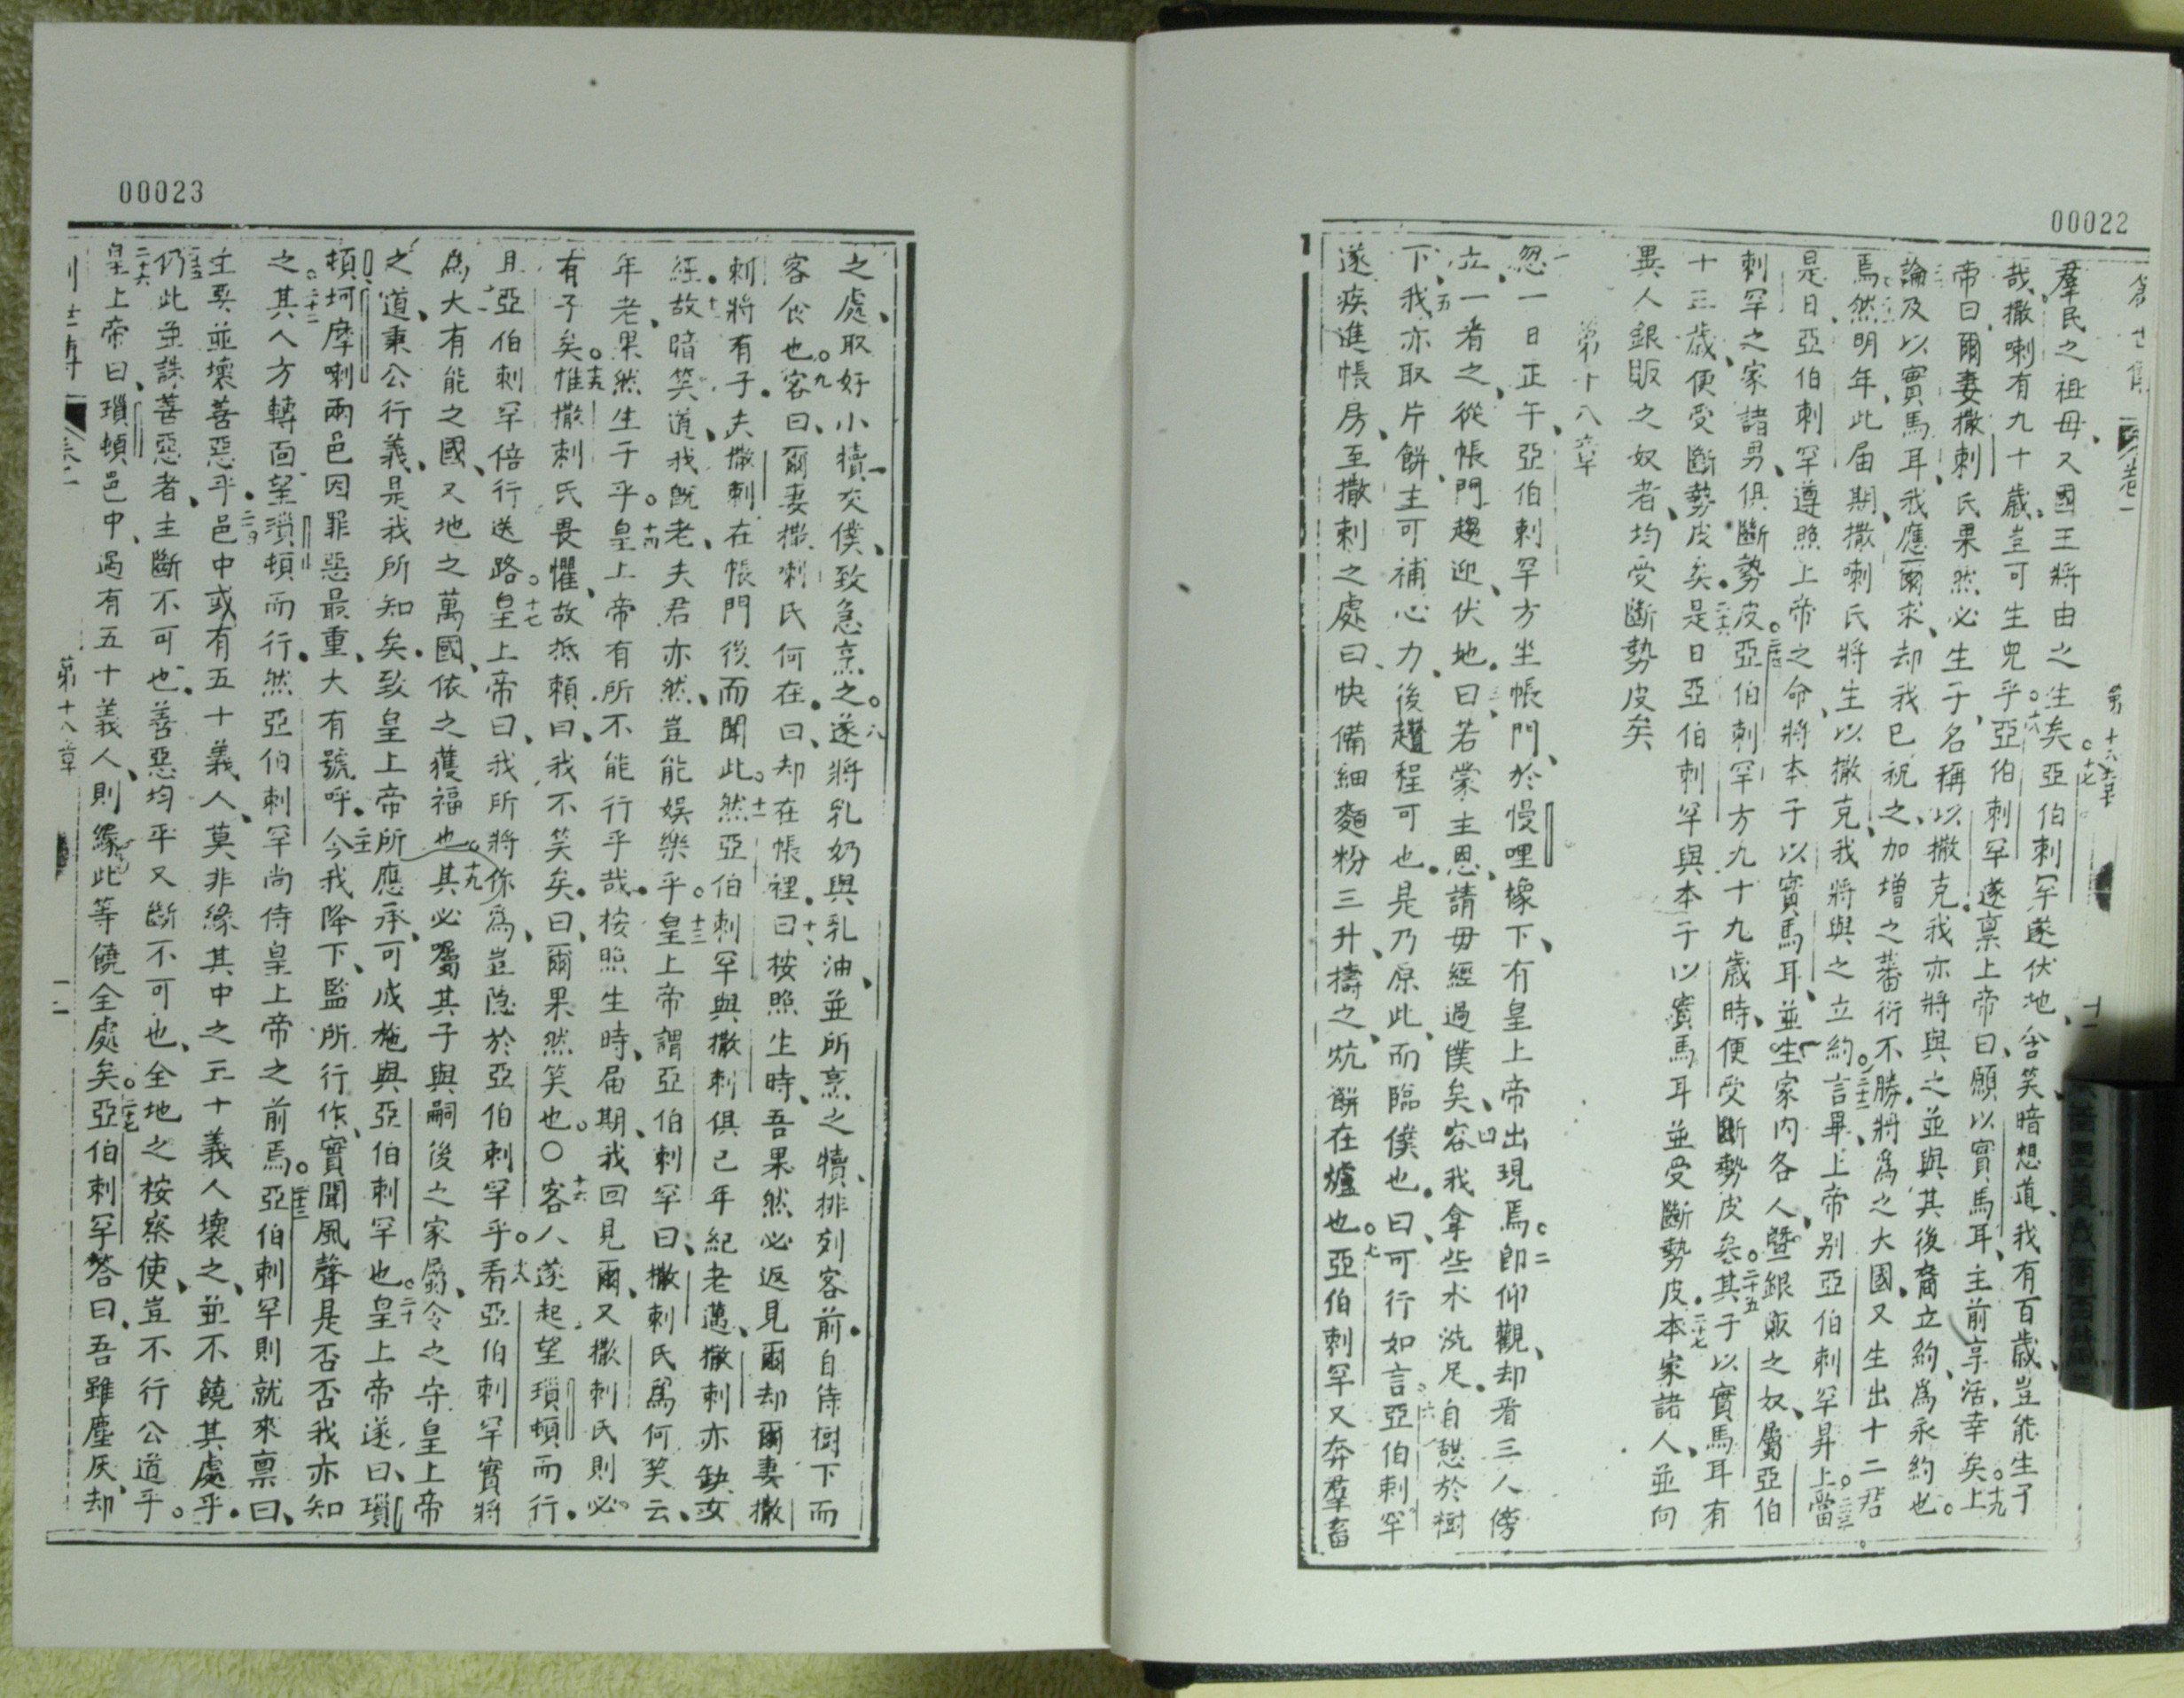 00022
羣民之祖母、又國王將由之生矣。十七亞伯剌罕遂伏地、含笑暗想道、我有百歲、豈能生子
哉、撒喇有九十歲、豈可生兒乎。十八亞伯剌罕遂禀上帝曰、願以實馬耳、主前享活幸矣。十九上
帝曰、爾妻撒剌氏果然必生子、名稱以撒克、我亦將與之並與其後裔立約、為永約也。
論及以實馬耳、我應爾求、却我已祝之、加增之蕃衍不勝、將為之大國、又生出十二君
焉、然明年、此届期、撒喇氏將生以撒克、我將與之立約。二十二言畢、上帝別亞伯剌罕昇上。二十三當
是日亞伯剌罕遵照上帝之命、將本子以實馬耳、並生家内各人、暨銀販之奴、屬亞伯
剌罕之家諸男、俱斷勢皮。二十四亞伯剌罕方九十九歲時、便受斷勢皮矣。二十五其子以實馬耳有
十三歲、便受斷勢皮矣。二十六是日亞伯剌罕與本子以實馬耳並受斷勢皮。二十七本家諸人、並向
異人銀販之奴者、均受斷勢皮矣
第十八章
一忽一日正午、亞伯剌罕方坐帳門、於慢哩橡下、有皇上帝出現焉。二即仰觀、却看三人傍
立、一看之、從帳門趨迎、伏地。三曰、若蒙主恩、請毋經過僕矣、四容我拿些水洗足、自憩於樹
下、五我亦取片餅、主可補心力、後趲程可也、是乃原此、而臨僕也、曰、可行如言。六亞伯剌罕
遂疾進帳房、至撒剌之處曰、快備細麵粉三升、擣之、炕餅在爐也。七亞伯剌罕又奔羣畜
00023
之處、取好小犢、交僕、致急烹之。八遂將乳奶與乳油、並所烹之犢、排列客前、自侍樹下而
客食也。九客曰、爾妻撒喇氏何在、曰、却在帳裡。十曰、按照生時、吾果然必返見爾、却爾妻撒
剌將有子、夫撒剌在帳門後而聞此。十一然亞伯剌罕與撒剌俱已年紀老邁、撒剌亦缺女
經、十二故暗笑道、我既老、夫君亦然、豈能娛樂乎。十三皇上帝謂亞伯剌罕曰、撒剌氏為何笑云、
年老、果然生子乎。十四皇上帝有所不能行乎哉、按照生時、届期、我回見爾、又撒剌氏則必
有子矣。十五惟撒剌氏畏懼、故抵賴曰、我不笑矣、曰、爾果然笑也。○十六客人遂起望瑣頓而行、
且亞伯剌罕倍行送路。十七皇上帝曰、我所將作為、豈隱於亞伯剌罕乎。十八看亞伯剌罕實將
為大有能之國、又地之萬國、依之獲福也。十九其必囑其子與嗣後之家屬、令之守皇上帝
之道、秉公行義、是我所知矣、致皇上帝所應承、可成施與亞伯剌罕也。二十皇上帝遂曰、瑣
頓、坷摩喇兩邑因罪惡最重、大有號呼。二十一今我降下、監所行作、實聞風聲是否、否我亦知
之。二十二其人方轉面望瑣頓而行、然亞伯剌罕尚侍皇上帝之前焉。二十三亞伯剌罕則就來禀曰、
主要並壞善惡乎、二十四邑中或有五十義人、莫非緣其中之五十義人壞之、並不饒其處乎、
二十五仍此並誅善惡者、主斷不可也、善惡均平、又斷不可也、全地之按察使、豈不行公道乎。
二十六皇上帝曰、瑣頓邑中、遇有五十義人、則緣此等饒全處矣。二十七亞伯剌罕答曰、吾雖塵灰、却
第十八章